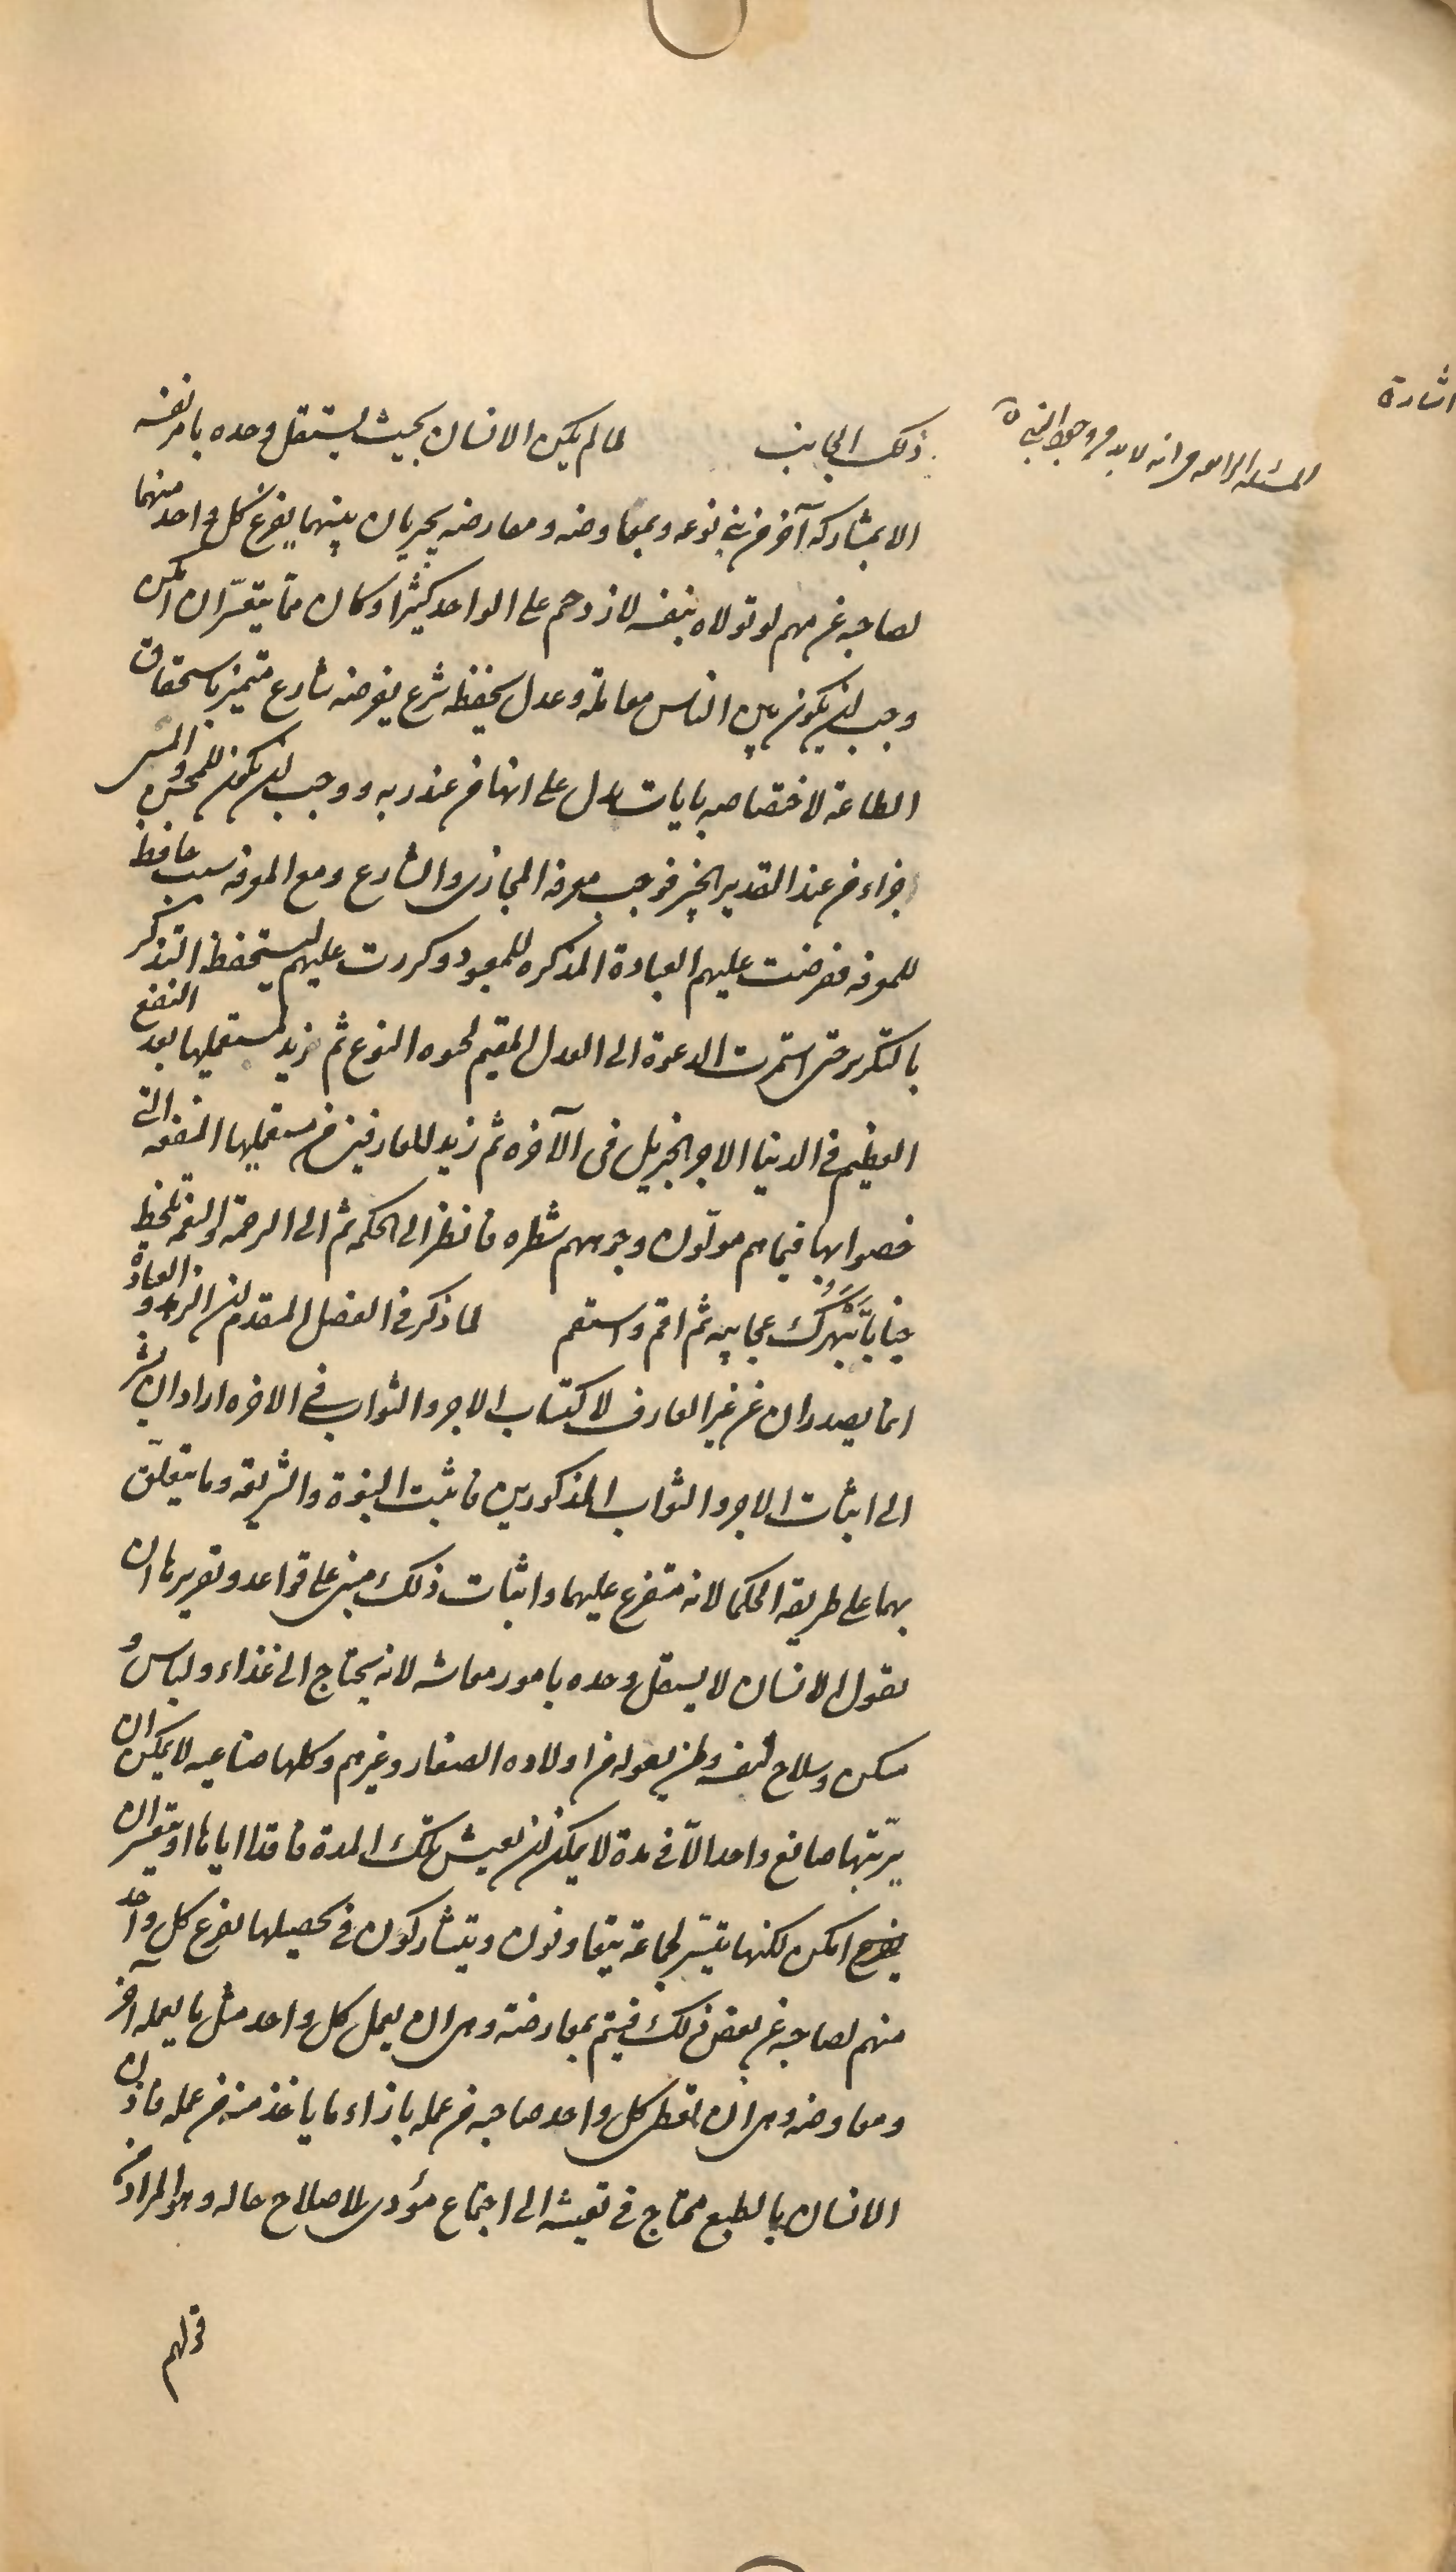 اشارة
المسئلة الرابعة فى انه لا بد من وجود النبى
ذلك الجانب لما لم يكن الانسان بحيث يستقل وحده بامر نفسه
الا بمشاركة آخر من بنى نوعه وبمعاوضه ومعارضه يجريان بينهما يفرغ كل واحد منهما
لصاحبه عن مهم لو تولاه بنفسه لازدحم على الواحد كثيرا وكان مما يتعسّر ان امكن
وجب ان يكون بين الناس معاملة وعدل يحفظه شرع يفرضه شارع متميز باستحقاق
الطاعة لاختصاصه بايات تدل على انها من عند ربه ووجب ان يكون للمحسن والمسى
جزاء من عند القدير الخبير فوجب معرفة المجازى والشارع ومع المعرفه سبب حافظ
للمعرفه ففرضت عليهم العبادة المذكره للمعبود وكررت عليهم ليستحفظ التذكر
بالتكرير حتى استمرت الدعوة الى العدل المقيم لحيوه النوع ثم زيد لمستعمليها بعد النفع
العظيم فى الدنيا الاجر الجزيل فى الآخره ثم زيد للعارفين من مستعمليها المنفعه التى
خصوا بها فيما هم مولّون وجوههم شطره فانظر الى الحكمه ثم الى الرحمة والنعمة تلحظ
جنابا تَبْهَرُك عجايبه ثم اقم واستقم لما ذكر فى الفصل المقدم ان الزهد والعبادة
انما يصدران عن غير العارف لاكتساب الاجر والثواب فى الاخره اراد ان يشير
الى اثبات الاجر والثواب المذكورين فاثبت النبوة والشريعة وما يتعلّق
بهما على طريقة الحكما لانه متفرع عليهما واثبات ذلك مبنى على قواعد وتقريرها ان
نقول الانسان لا يستقل وحده بامور معاشه لانه يحتاج الى غذاء ولباس و
مسكن وسلاح لنفسه ولمن يعوله من اولاده الصغار وغيرهم وكلها صناعيه لا يمكن ان
يرتّبها صانع واحد الّا فى مدة لا يمكن ان يعيش تلك المدة فاقدا اياها او يتعسر ان
امكن لكنها يتيسّر لجماعة يتعاونون ويتشاركون فى تحصيلها يفرغ كل واحد
منهم لصاحبه عن بعض ذلك فيتم بمعارضة وهى ان يعمل كل واحد مثل ما يعمله آخر
ومعاوضه وهى ان يعطى كل واحد صاحبه من عمله بازاء ما ياخذ منه من عمله فاذن
الانسان بالطبع محتاج فى تعيشه الى اجتماع مؤدى لاصلاح حاله وهو المراد من
قولهم